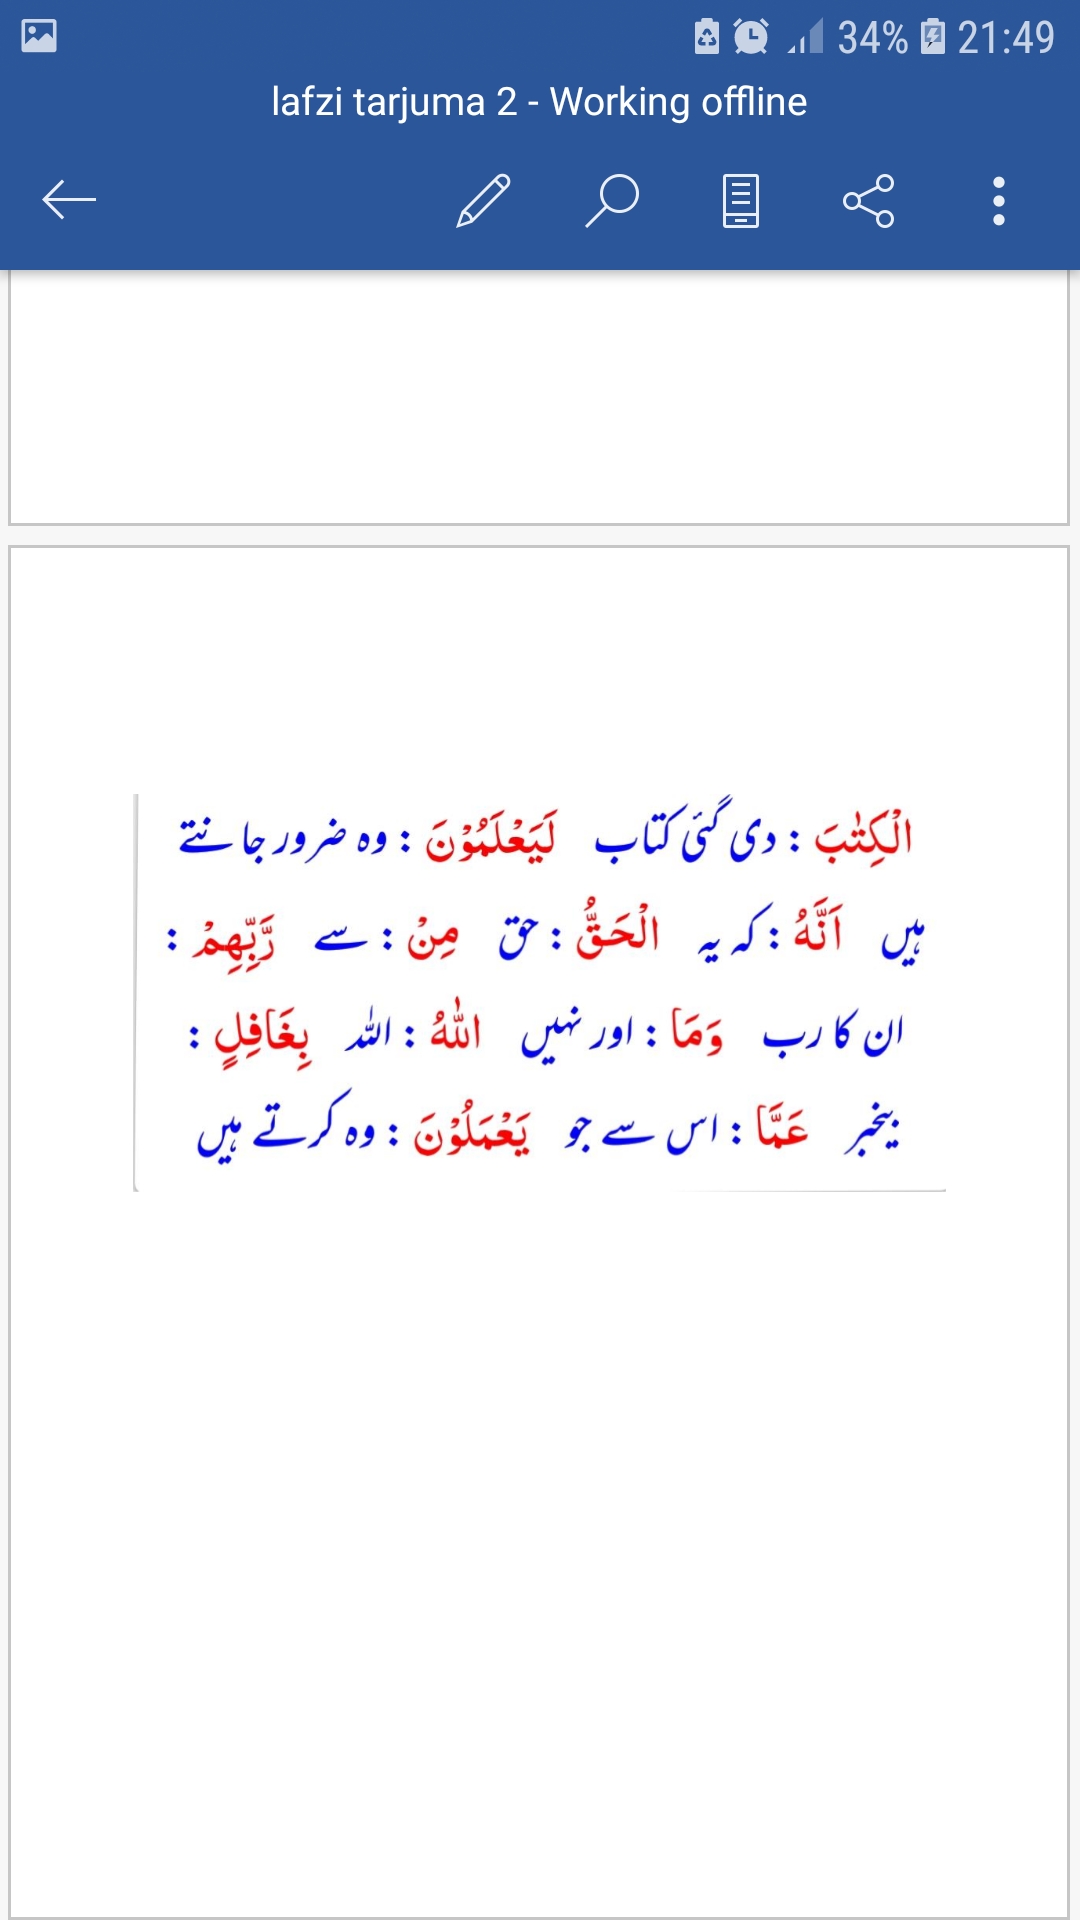 34% 21:49
lafzi tarjuma 2 - Working offline
الْكِتٰبَ : دی گئی کتاب لَيَعْلَمُوْنَ : وہ ضرور جانتے
ہیں اَنَّهُ : کہ یہ الْحَقُّ : حق مِنْ : سے رَّبِّهِمْ :
ان کا رب وَمَا : اور نہیں اللّٰهُ : اللہ بِغَافِلٍ :
بیخبر عَمَّا : اس سے جو يَعْمَلُوْنَ : وہ کرتے ہیں